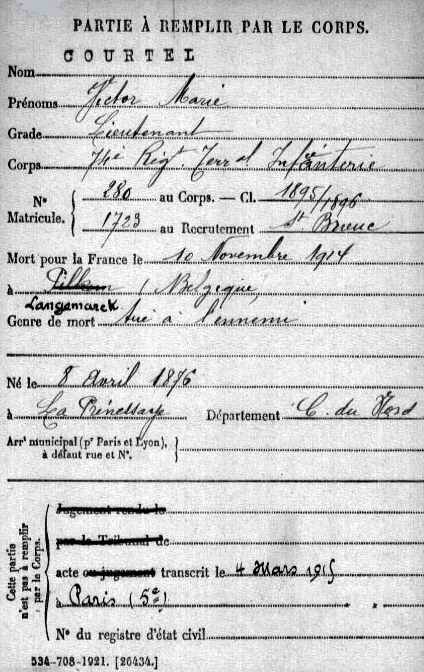 PARTIE À REMPLIR PAR LE CORPS.
COURTEL
Nom
Prénoms Victor Marie
Grade Lieutenant
Corps 74è Rég.t Terr.al Infanterie
N° Matricule. { 280 au Corps. — Cl. 1895/1896
1723 au Recrutement St Brieuc
Mort pour la France le 10 Novembre 1914
à / Belgique,
Langemarck
Genre de mort tué à l'ennemi
Né le 8 Avril 1876
à La Prénessaye Département C. du Nord
Arrt municipal (pr Paris et Lyon),
à défaut rue et N°.
Cette partie n'est pas à remplir par le Corps.
Jugement rendu le
par le Tribunal de
acte ou jugement transcrit le 4 Mars 1915
à Paris (5e)
N° du registre d'état civil
534-708-1921. [26434.]